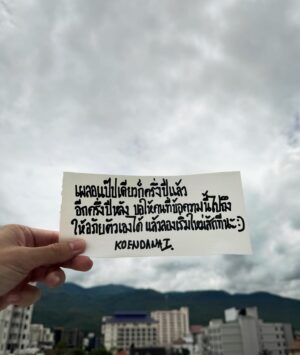 เผลอแป๊ปเดียวก็ครึ่งปีแล้ว
อีกครึ่งปีหลัง ขอให้คนที่ข้อความนี้ไปถึง
ให้อภัยตัวเองได้ แล้วลองเริ่มใหม่สักทีนะ :)
KOENDANAI.